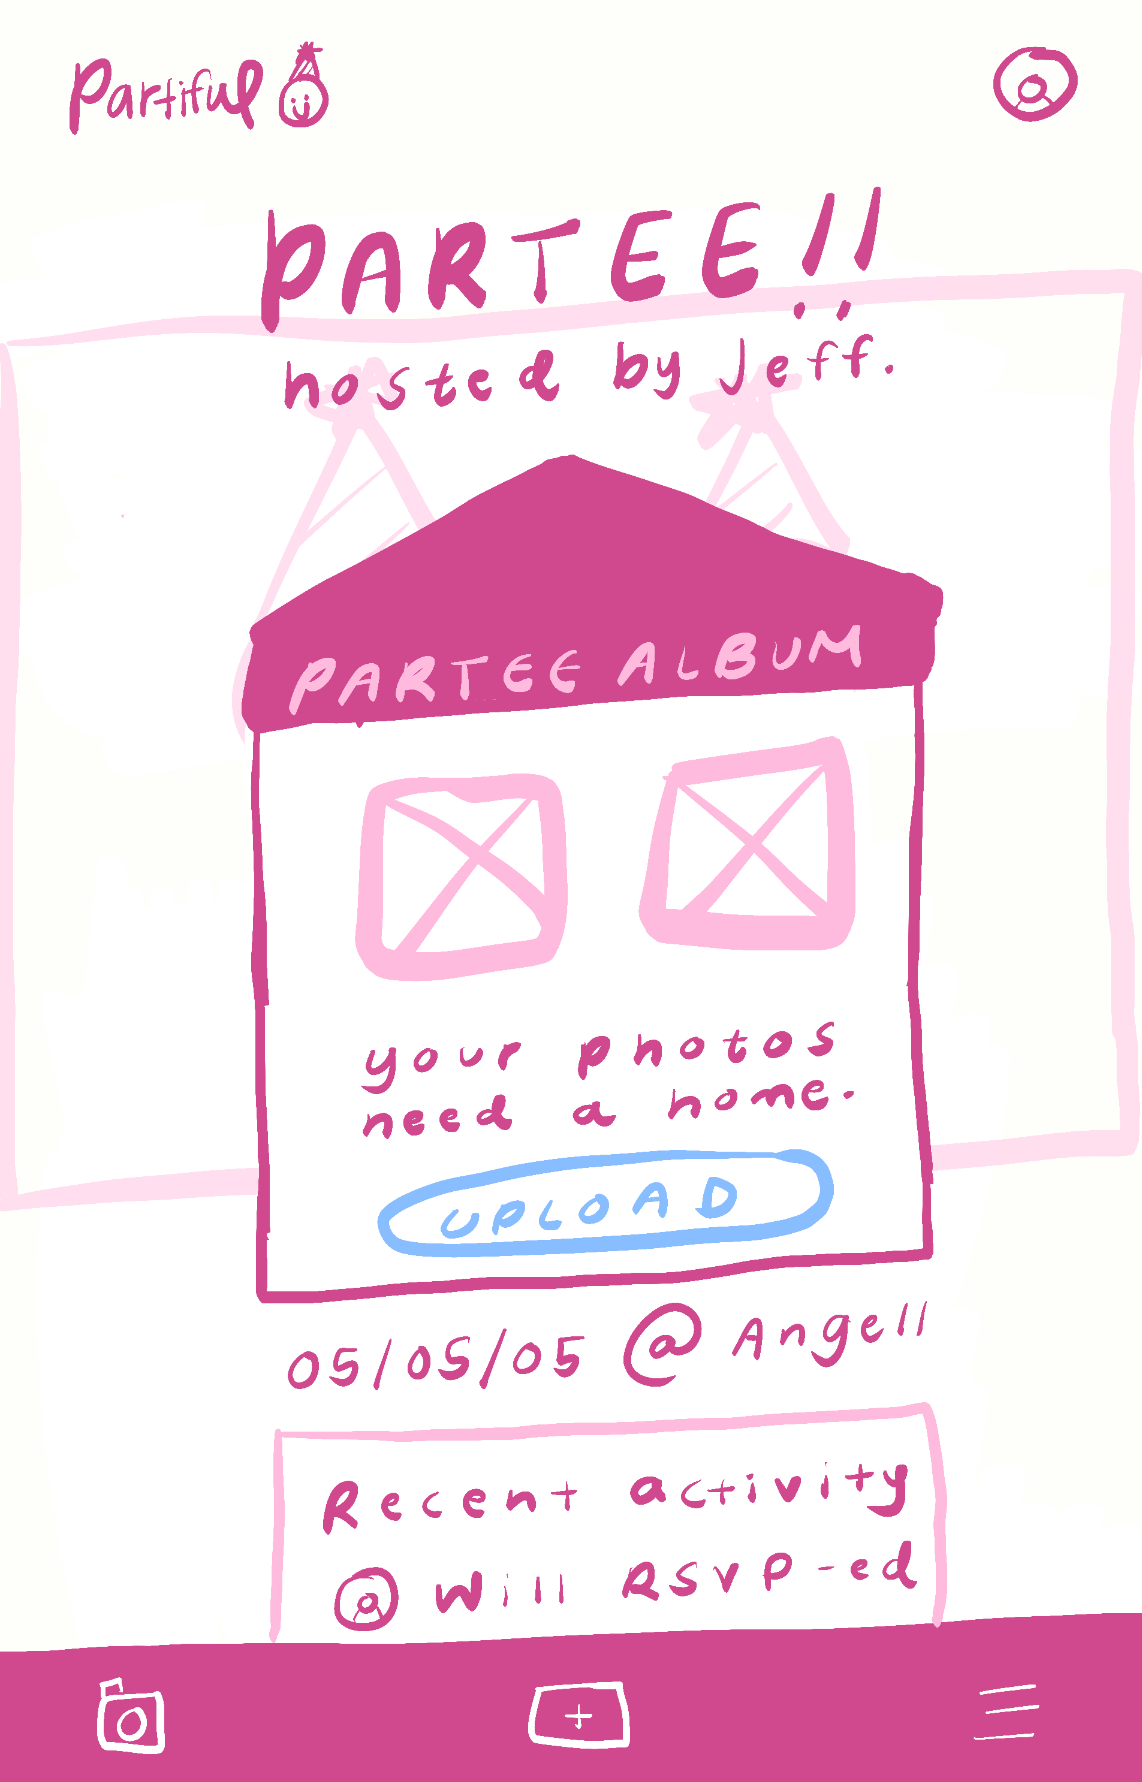 Partiful
PARTEE!!
hosted by Jeff.
PARTEE ALBUM
your photos
need a home.
UPLOAD
05/05/05 @ Angell
Recent activity
Will RSVP-ed